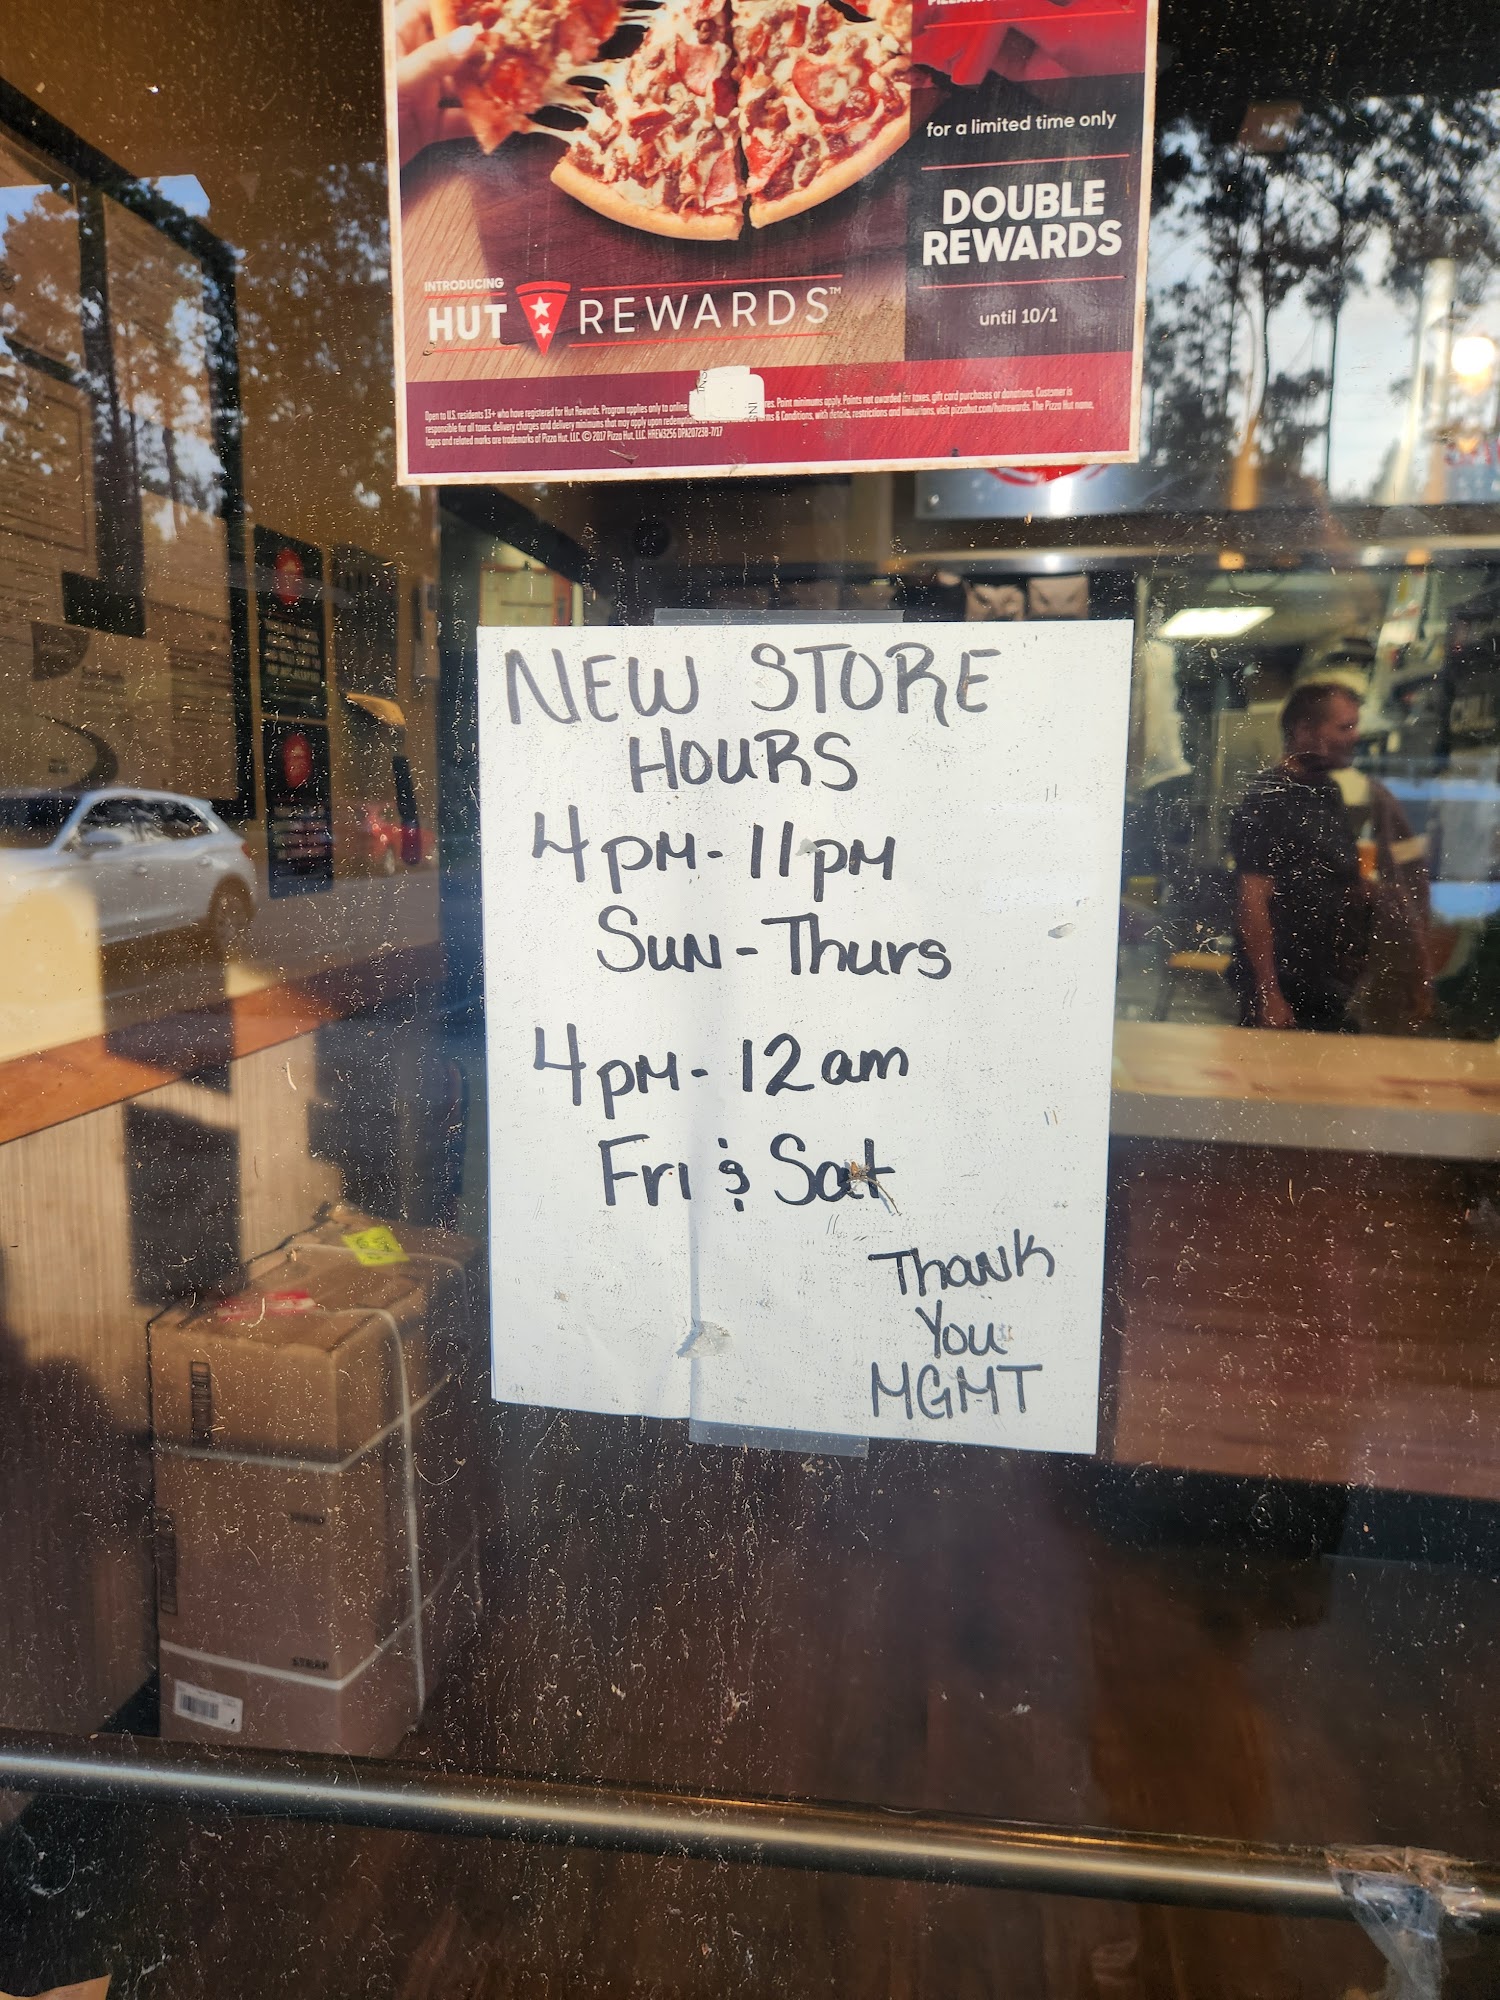 for a limited time only
DOUBLE
REWARDS
until 10/1
INTRODUCING
HUT REWARDS™
Open to U.S. residents 13+ who have registered for Hut Rewards. Program applies only to online
res. Point minimums apply. Points not awarded for taxes, gift card purchases or donations. Customer is
responsible for all taxes, delivery charges and delivery minimums that may apply upon redemption.
ms & Conditions, with details, restrictions and limitations, visit pizzahut.com/hutrewards. The Pizza Hut name,
logos and related marks are trademarks of Pizza Hut, LLC. © 2017 Pizza Hut, LLC.
NEW STORE
HOURS
4pm-11pm
Sun-Thurs
4pm-12am
Fri & Sat
Thank
You
MGMT
STRAP